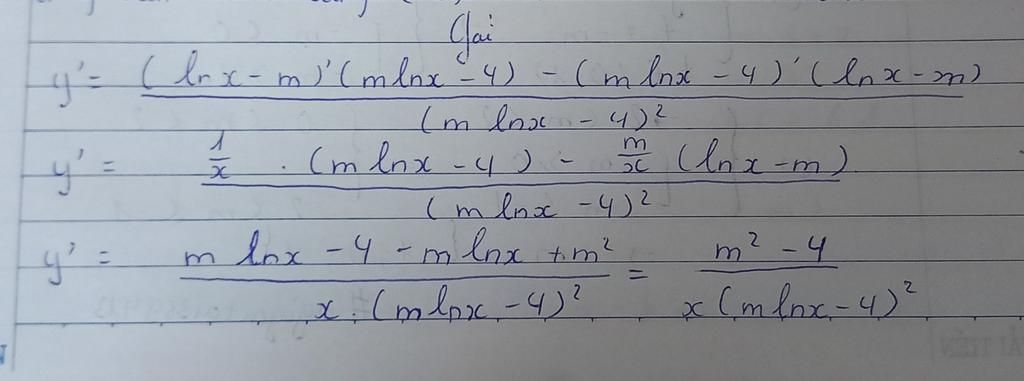 Giải
y' = \frac{(\ln x - m)'(m \ln x - 4) - (m \ln x - 4)'(\ln x - m)}{(m \ln x - 4)^2}
y' = \frac{\frac{1}{x} \cdot (m \ln x - 4) - \frac{m}{x} (\ln x - m)}{(m \ln x - 4)^2}
y' = \frac{m \ln x - 4 - m \ln x + m^2}{x \cdot (m \ln x - 4)^2} = \frac{m^2 - 4}{x (m \ln x - 4)^2}